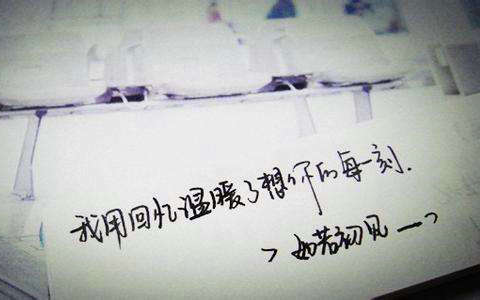 我用回忆温暖了想你的每一刻.
>如若初见一>